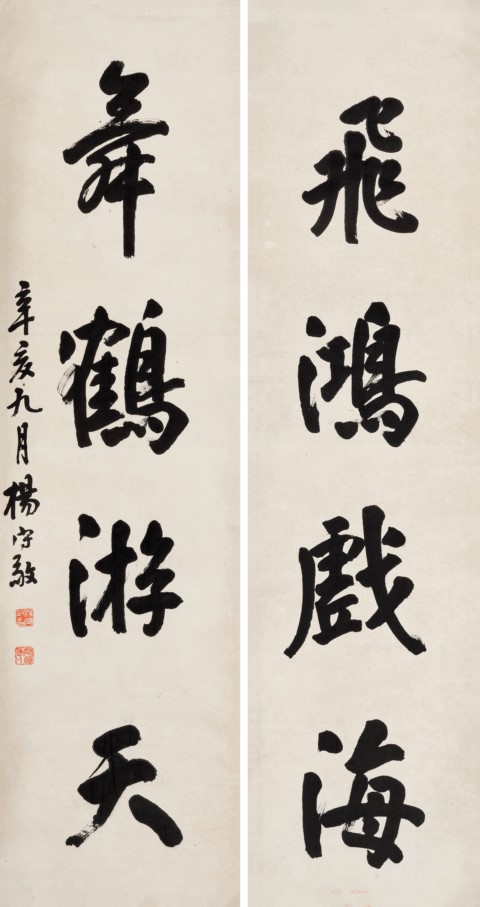 飛鴻戲海
舞鶴游天
辛亥九月楊守敬